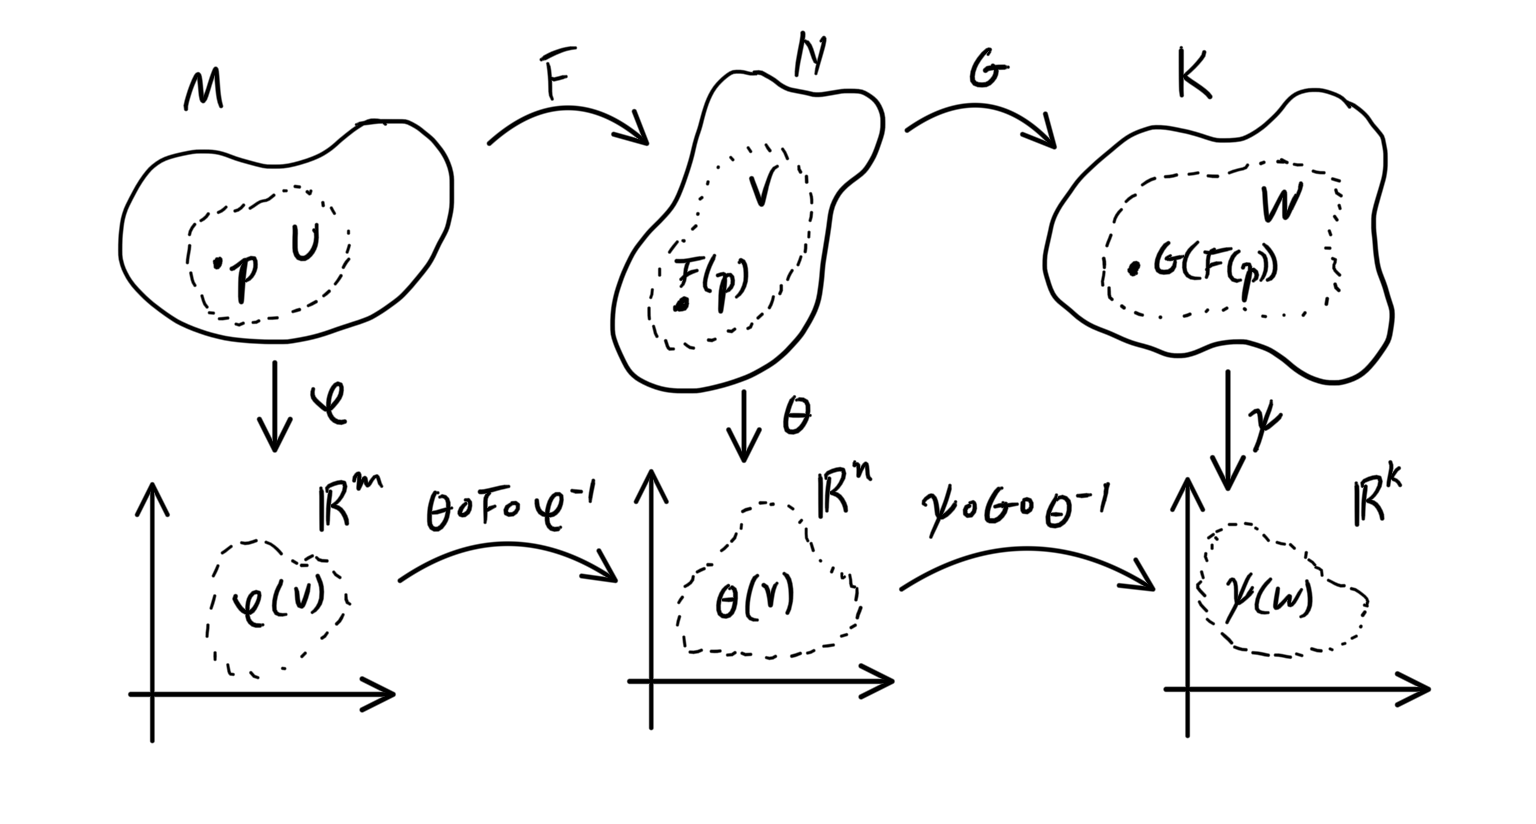 M F N G K
U V W
p F(p) G(F(p))
φ θ ψ
ℝᵐ θ∘F∘φ⁻¹ ℝⁿ ψ∘G∘θ⁻¹ ℝᵏ
φ(U) θ(V) ψ(W)